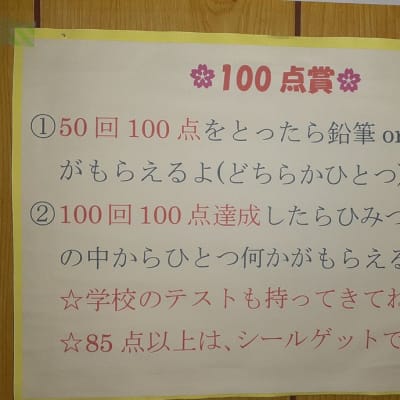 🌸100点賞🌸
①50回100点をとったら鉛筆or
がもらえるよ(どちらかひとつ)
②100回100点達成したらひみつ
の中からひとつ何かがもらえる
☆学校のテストも持ってきてね
☆85点以上は、シールゲットで